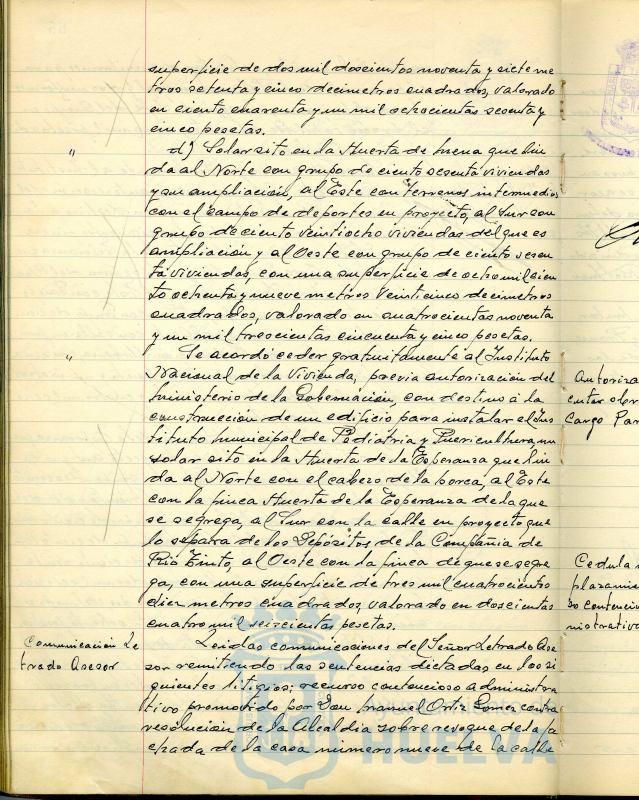 superficie de dos mil doscientos noventa y siete me
tros setenta y cinco decimetros cuadrados, valorado
en ciento cuarenta y un mil ochocientas sesenta y
cinco pesetas.
" d) Solar sito en la Huerta de Mena que lin
da al Norte con grupo de ciento sesenta viviendas
y su ampliación, al Este con terrenos intermedios
con el campo de deportes en proyecto, al Sur con
grupo de ciento veintiocho viviendas del que es
ampliación y al Oeste con grupo de ciento sesen
ta viviendas, con una superficie de ocho mil cien
to ochenta y nueve metros veinticinco decimetros
cuadrados, valorado en cuatrocientas noventa
y un mil trescientas cincuenta y cinco pesetas.
" Se acordó ceder gratuitamente al Instituto
Nacional de la Vivienda, previa autorización del
Ministerio de la Gobernación, con destino á la
construcción de un edificio para instalar el Ins
tituto Municipal de Pediatria y Puericultura, un
solar sito en la Huerta de la Esperanza que lin
da al Norte con el cabezo de la Horca, al Este
con la finca Huerta de la Esperanza de la que
se segrega, al Sur con la calle en proyecto que
lo separa de los Depósitos de la Compañia de
Rio Tinto, al Oeste con la finca de que se segre
ga, con una superficie de tres mil cuatrocientos
diez metros cuadrados, valorado en doscientas
cuatro mil seiscientas pesetas.
Comunicación Le
trado Asesor
Leidas comunicaciones del Señor Letrado Ase
sor remitiendo las sentencias dictadas en los si
guientes litigios: recurso contencioso administra
tivo promovido por Don Manuel Ortiz Gomez contra
resolución de la Alcaldia sobre revoque de la fa
chada de la casa numero nueve de la calle
Autoriza
cargo Par
Cedula
plazamie
so contenci
nistrativo
HUELVA